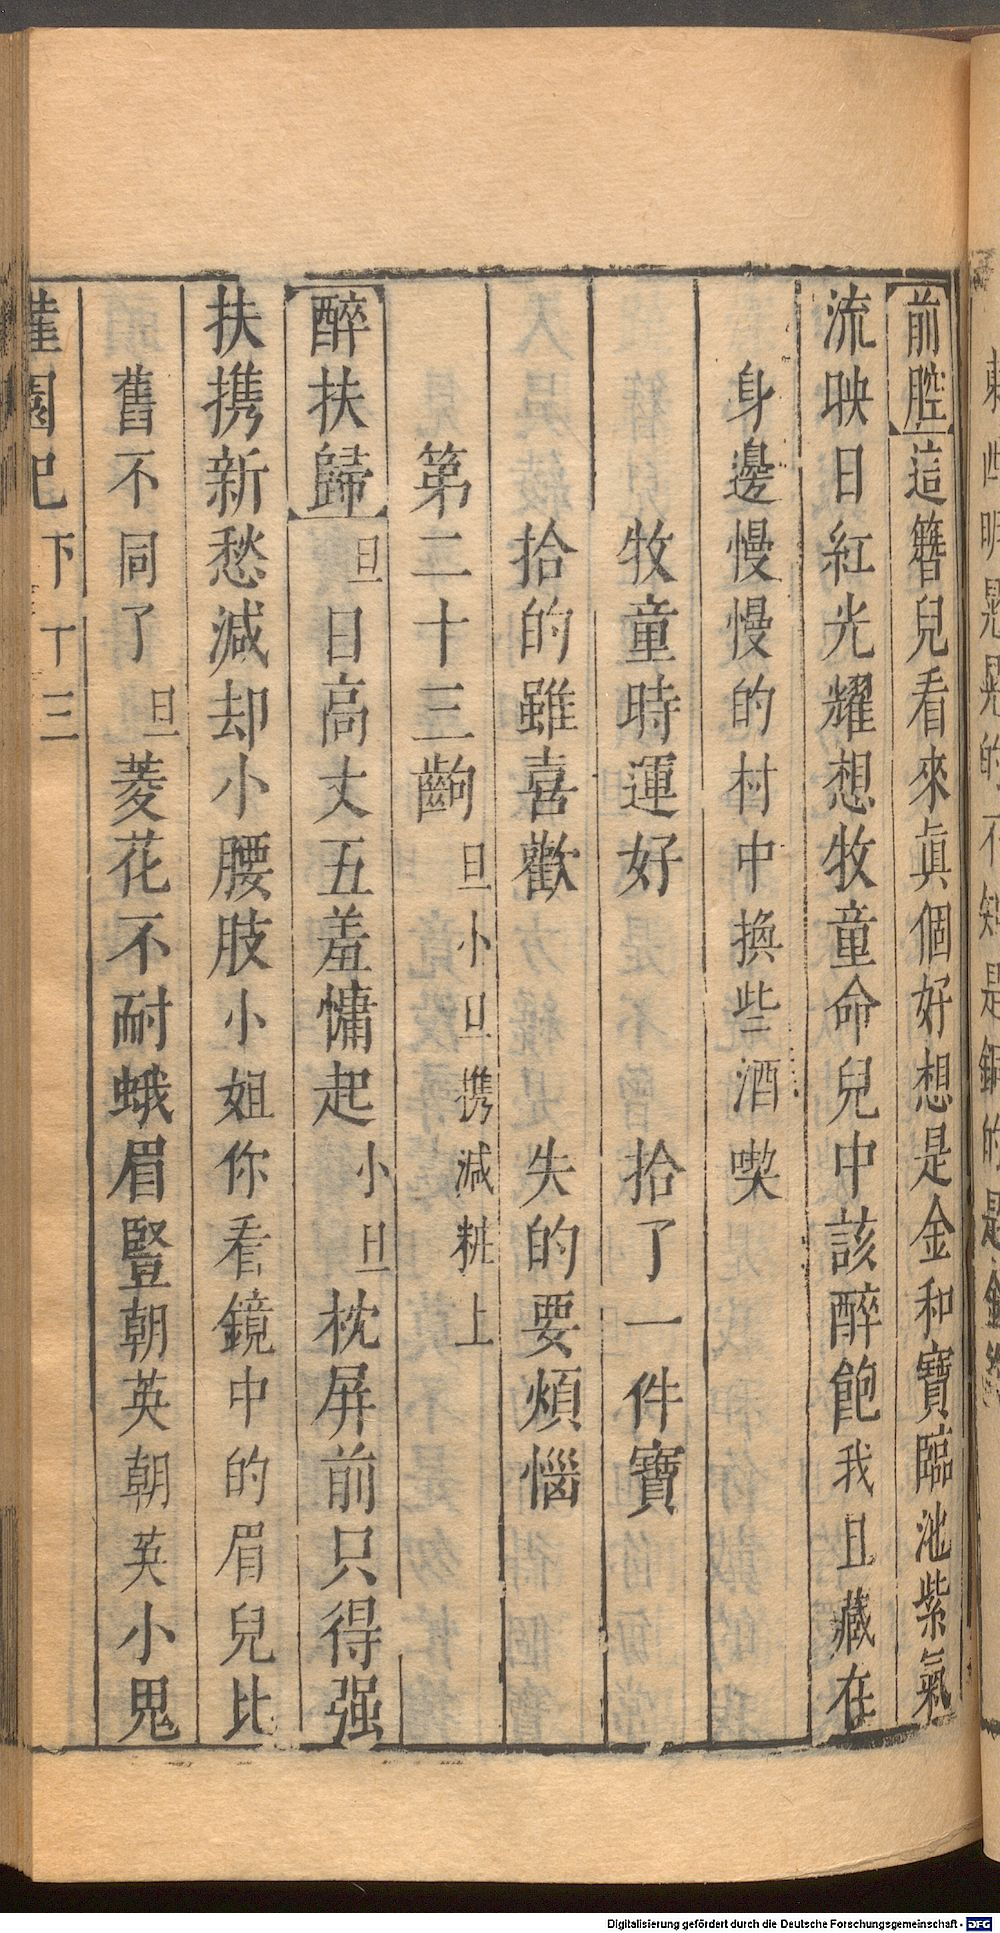 前腔這簪兒看來眞個好想是金和寶臨池紫氣
流映日紅光耀想牧童命兒中該醉飽我且藏在
身邊慢慢的村中換些酒喫
牧童時運好 拾了一件寶
拾的雖喜歡 失的要煩惱
第二十三齣旦小旦携減粧上
醉扶歸旦日高丈五羞慵起小旦枕屏前只得强
扶携新愁減却小腰肢小姐你看鏡中的眉兒比
舊不同了旦菱花不耐蛾眉豎朝英朝英小鬼
園記 下 十三
Digitalisierung gefördert durch die Deutsche Forschungsgemeinschaft - DFG